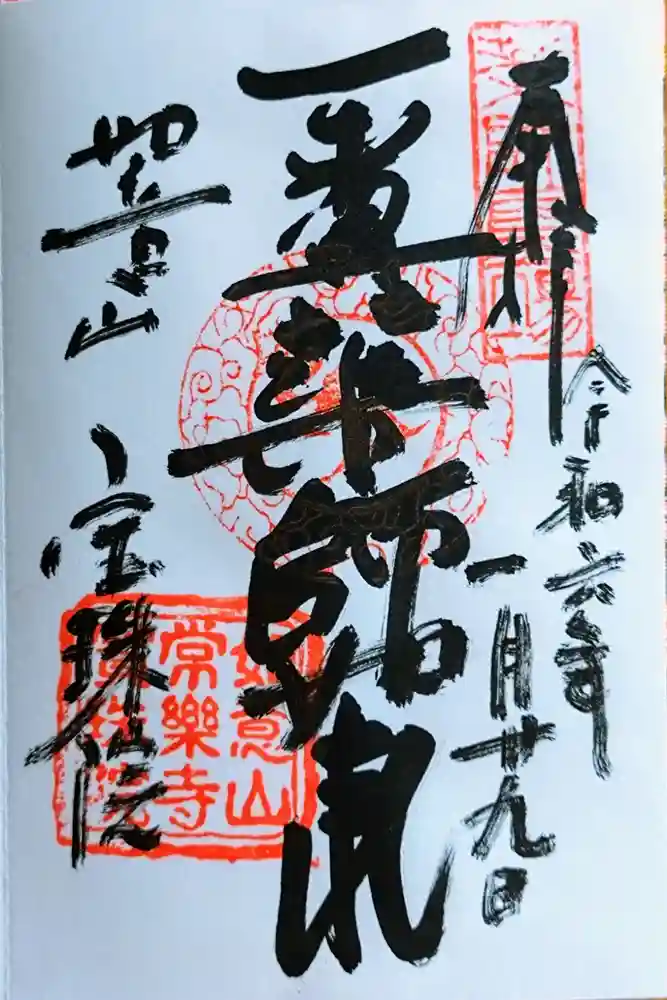 奉拝
令和六年
一月廿九日
一番薬師
如意山
宝珠院
如意山
常樂寺
寶珠院